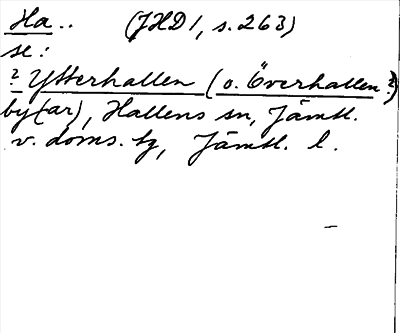 Ha.. (JHD 1, s. 263)
se:
? Ytterhallen (o. Överhallen?)
by(ar), Hallens sn, Jämtl.
v. doms. tg, Jämtl. l.